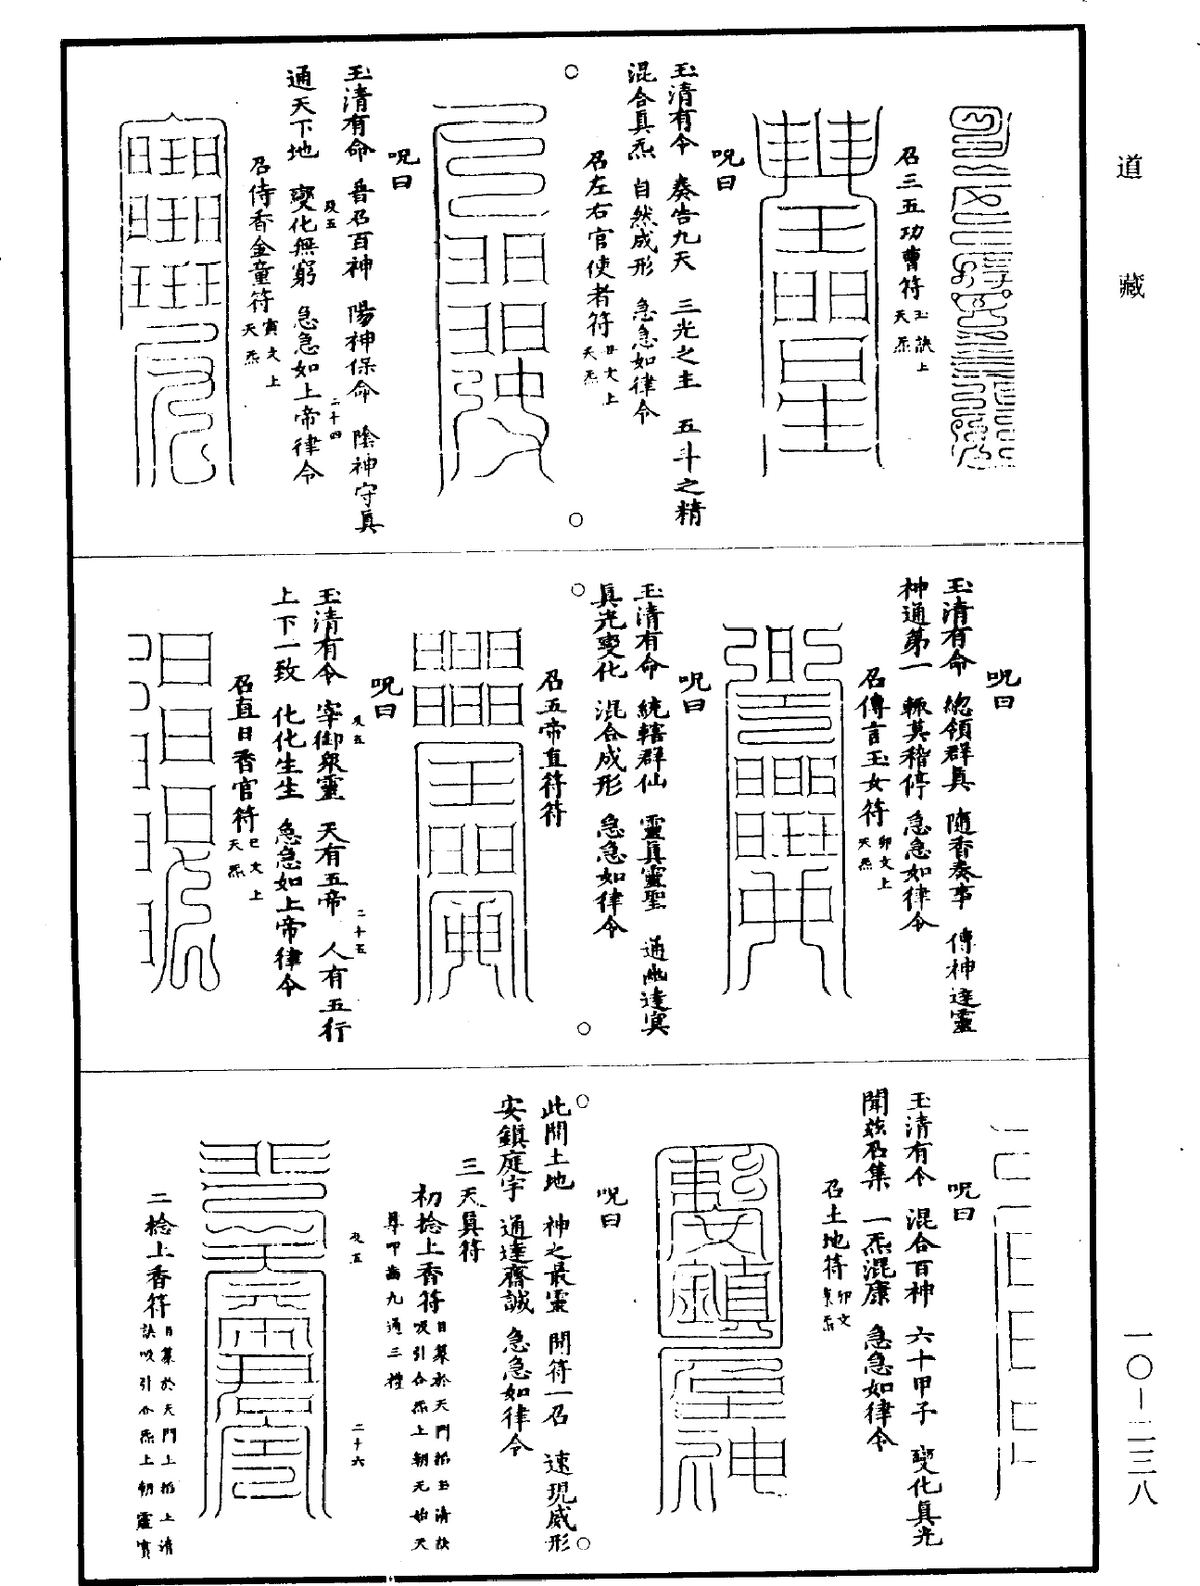 道藏
召三五功曹符 玉訣上天炁
呪曰
玉清有令 奏告九天 三光之主 五斗之精
混合真炁 自然成形 急急如律令
召左右官使者符 丑文上天炁
呪曰
玉清有命 普召百神 陽神保命 陰神守真
及五 二十四
通天下地 變化無窮 急急如上帝律令
召侍香金童符 寅文上天炁
呪曰
玉清有命 總領群真 隨香奏事 傳神達靈
神通第一 輙莫稽停 急急如律令
召傳言玉女符 卯文上天炁
呪曰
玉清有命 統轄群仙 靈真靈聖 通幽達冥
真光變化 混合成形 急急如律令
召五帝直符符
呪曰
及五 二十五
玉清有令 宰御眾靈 天有五帝 人有五行
上下一致 化化生生 急急如上帝律令
召直日香官符 巳文上天炁
呪曰
玉清有令 混合百神 六十甲子 變化真光
聞茲召集 一炁混康 急急如律令
召土地符 卯文東炁
呪曰
此間土地 神之最靈 開符一召 速現威形
安鎮庭宇 通達齋誠 急急如律令
三天真符
初捻上香符 目算於天門掐玉清訣吸引合炁上朝元始天
尊叩齒九通三禮
及五 二十六
二捻上香符 目算於天門上掐上清訣吸引合炁上朝靈寶
一〇—二三八